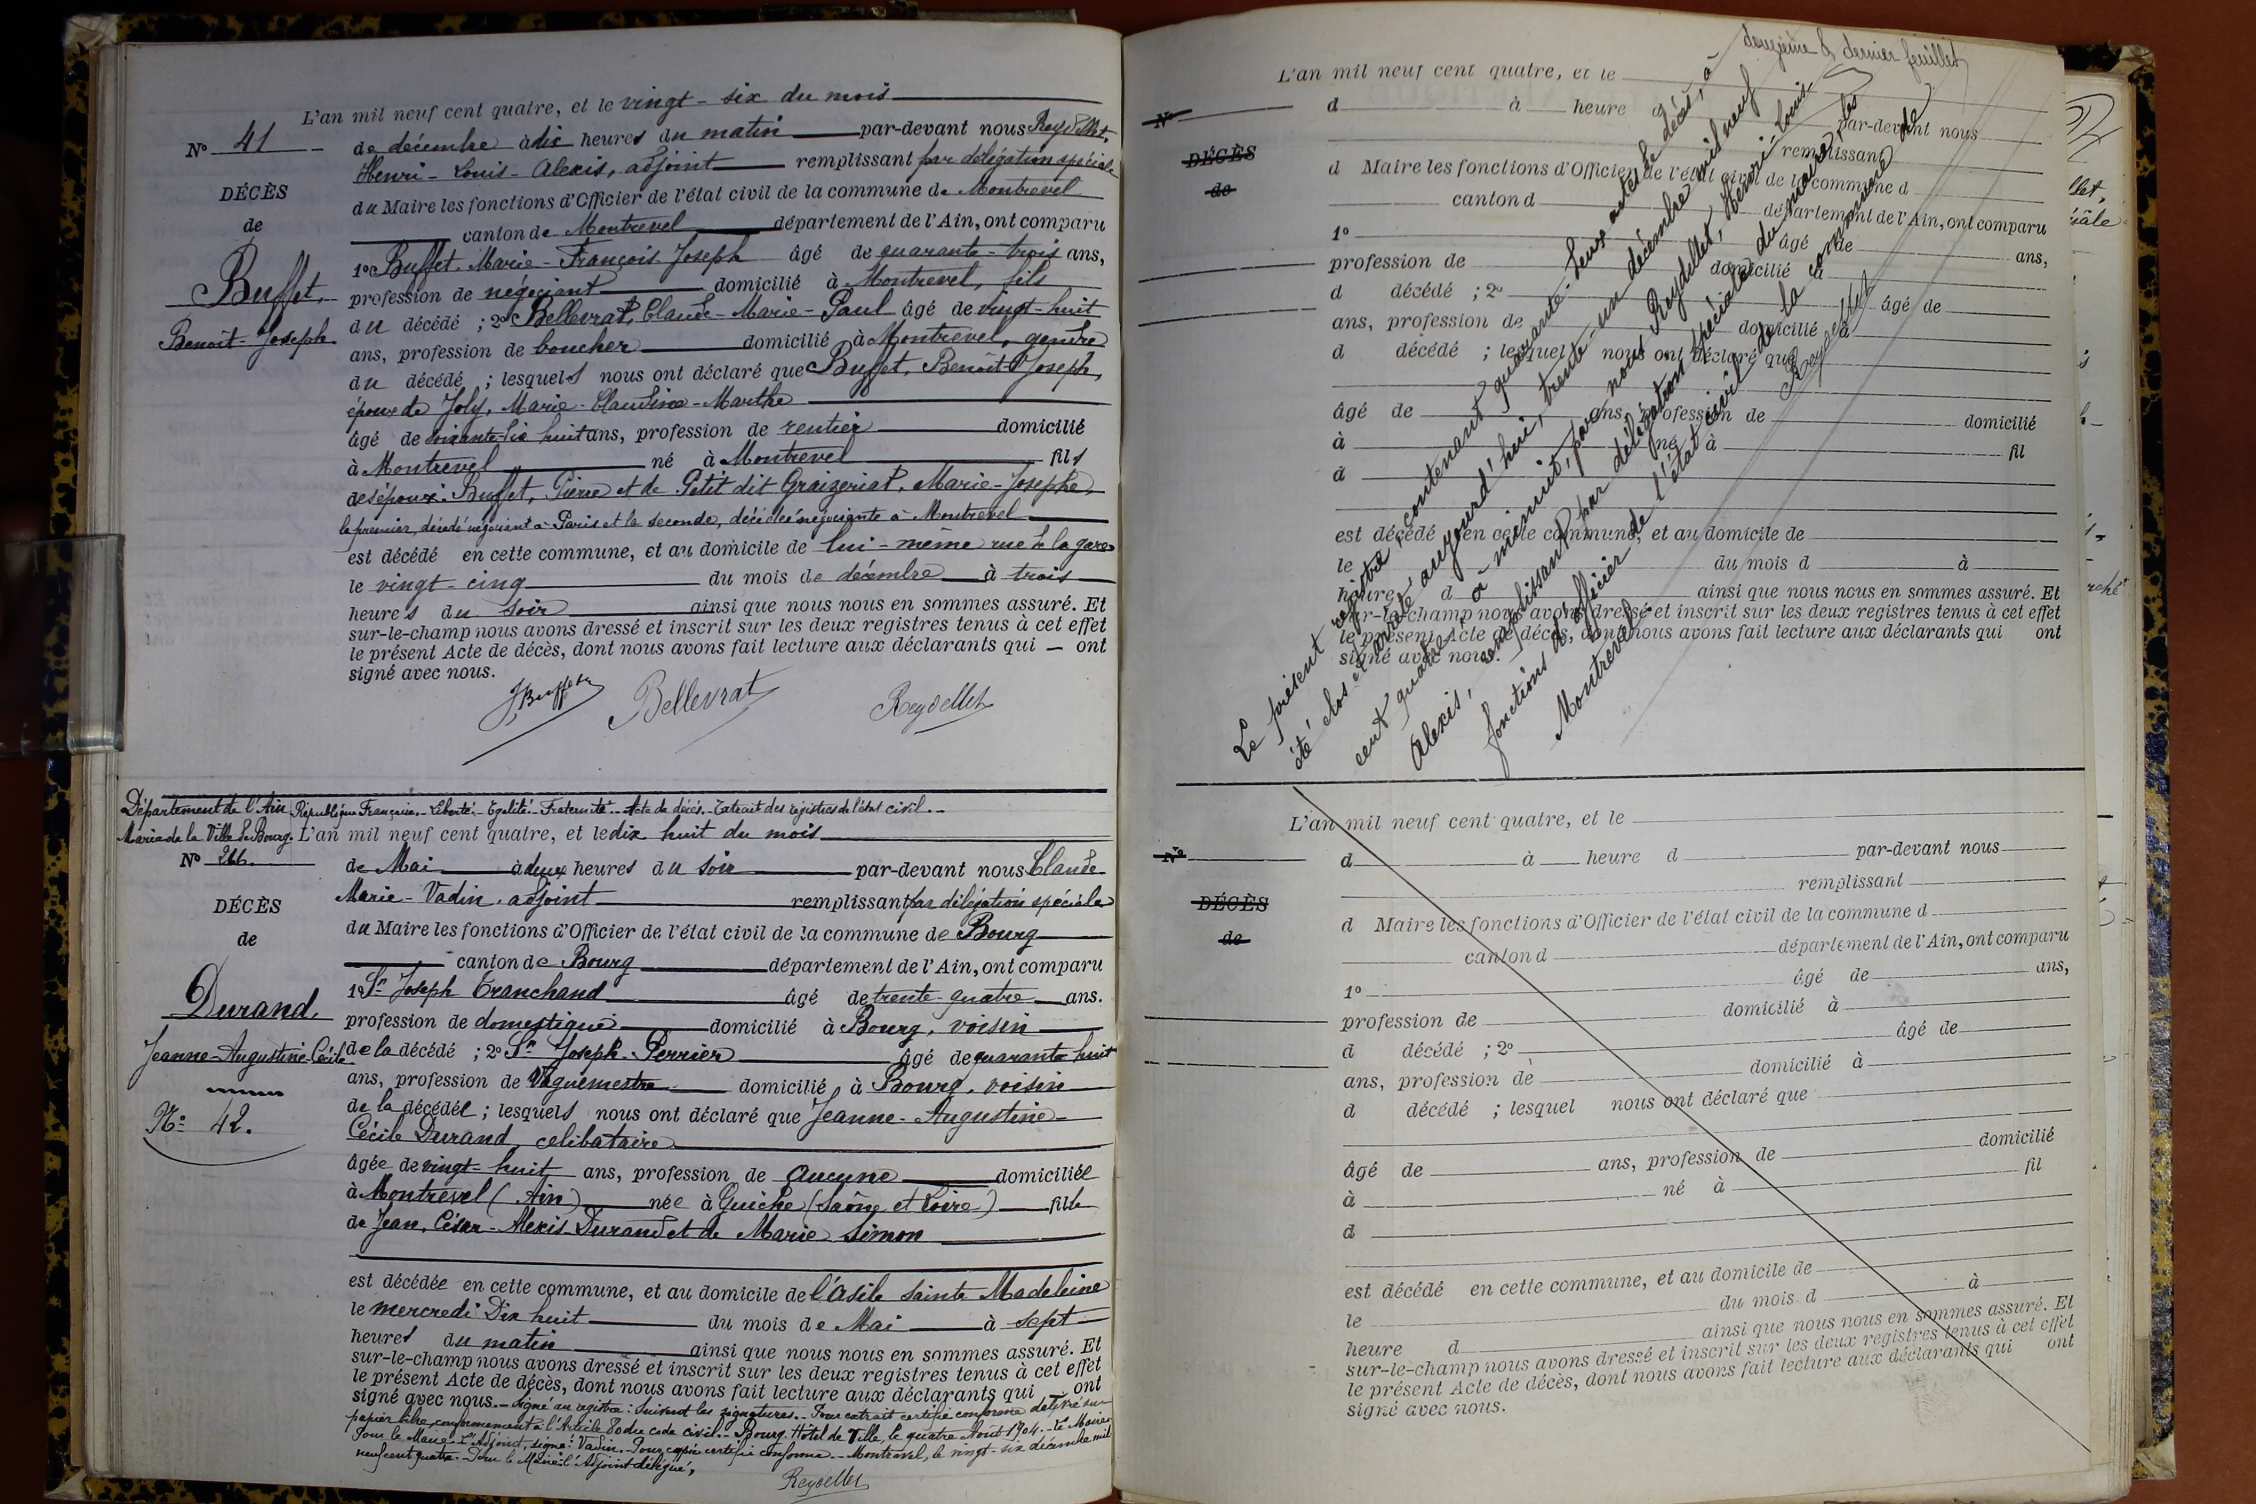 L'an mil neuf cent quatre, et le vingt-six du mois
N° 41
de décembre à dix heures du matin par-devant nous Reydellet,
Henri-Louis-Alexis, adjoint remplissant par délégation spéciale
DÉCÈS
du Maire les fonctions d'Officier de l'état civil de la commune de Montrevel
de
canton de Montrevel département de l'Ain, ont comparu
1° Buffet, Marie-François-Joseph âgé de quarante-trois ans,
Buffet,
profession de négociant domicilié à Montrevel, fils
du décédé ; 2° Bellevrat, Claude-Marie-Paul âgé de vingt-huit
Benoît-Joseph
ans, profession de boucher domicilié à Montrevel, gendre
du décédé ; lesquels nous ont déclaré que Buffet, Benoît-Joseph,
époux de Joly, Marie-Claudine-Marthe
âgé de soixante-dix huit ans, profession de rentier domicilié
à Montrevel né à Montrevel fils
des époux: Buffet, Pierre et de Petit dit Graizeriat, Marie-Josephe,
le premier, décédé négociant à Paris et la seconde, décédée négociante à Montrevel
est décédé en cette commune, et au domicile de lui-même rue de la gare
le vingt-cinq du mois de décembre à trois
heures du soir ainsi que nous nous en sommes assuré. Et
sur-le-champ nous avons dressé et inscrit sur les deux registres tenus à cet effet
le présent Acte de décès, dont nous avons fait lecture aux déclarants qui — ont
signé avec nous.
J Buffet Bellevrat Reydellet
Département de l'Ain République Française.- Liberté.- Egalité.- Fraternité.- Acte de décès.- Extrait des registres de l'état civil.-
Mairie de la Ville de Bourg. L'an mil neuf cent quatre, et le dix huit du mois
N° 266.
de Mai à deux heures du soir par-devant nous Claude
Marie-Vadin, adjoint remplissant par délégation spéciale
DÉCÈS
du Maire les fonctions d'Officier de l'état civil de la commune de Bourg
de
canton de Bourg département de l'Ain, ont comparu
1° Sr Joseph Tranchand âgé de trente-quatre ans.
Durand,
profession de domestique domicilié à Bourg, voisin
Jeanne-Augustine-Cécile
de la décédé ; 2° Sr Joseph Perrier âgé de quarante huit
ans, profession de Vaguemestre domicilié à Bourg, voisin
N° 42.
de la décédée ; lesquels nous ont déclaré que Jeanne-Augustine-
Cécile Durand, celibataire
âgée de vingt-huit ans, profession de aucune domiciliée
à Montrevel (Ain) née à Guiche (Saône et Loire) fille
de Jean, César-Alexis Durand et de Marie Simon
est décédée en cette commune, et au domicile de l'asile Sainte Madeleine
le mercredi Dix huit du mois de Mai à sept
heures du matin ainsi que nous nous en sommes assuré. Et
sur-le-champ nous avons dressé et inscrit sur les deux registres tenus à cet effet
le présent Acte de décès, dont nous avons fait lecture aux déclarants qui ont
signé avec nous.- Signé au registre: Suivent les signatures.- Pour extrait certifié conforme délivré sur
papier libre conformément à l'Article 80 du code civil.- Bourg. Hôtel de Ville, le quatre Août 1904.- Le Maire
Pour le Maire-L'Adjoint, signé: Vadin.- Pour copie certifié conforme.- Montrevel, le vingt-six décembre mil
neuf cent quatre.- Pour le Maire: l'Adjoint délégué,
Reydellet
douzième & dernier feuillet
L'an mil neuf cent quatre, et le
N°
d à heure d par-devant nous
remplissant
DÉCÈS
d Maire les fonctions d'Officier de l'état civil de la commune d
de
canton d département de l'Ain, ont comparu
1° âgé de ans,
profession de domicilié à
d décédé ; 2° âgé de
ans, profession de domicilié à
d décédé ; lesquel nous ont déclaré que
âgé de ans, profession de domicilié
à né à fil
d
est décédé en cette commune, et au domicile de
le du mois d à
heure d ainsi que nous nous en sommes assuré. Et
sur-le-champ nous avons dressé et inscrit sur les deux registres tenus à cet effet
le présent Acte de décès, dont nous avons fait lecture aux déclarants qui ont
signé avec nous.
Le présent registre, contenant quarante-deux actes de décès, a
été clos et arrêté aujourd'hui, trente-un décembre mil neuf
cent quatre à minuit, par nous Reydellet, Henri-Louis-
Alexis, remplissant par délégation spéciale du maire, les
fonctions d'officier de l'état civil de la commune de
Montrevel.
Reydellet
L'an mil neuf cent quatre, et le
N°
d à heure d par-devant nous
remplissant
DÉCÈS
d Maire les fonctions d'Officier de l'état civil de la commune d
de
canton d département de l'Ain, ont comparu
1° âgé de ans,
profession de domicilié à
d décédé ; 2° âgé de
ans, profession de domicilié à
d décédé ; lesquel nous ont déclaré que
âgé de ans, profession de domicilié
à né à fil
d
est décédé en cette commune, et au domicile de
le du mois d à
heure d ainsi que nous nous en sommes assuré. Et
sur-le-champ nous avons dressé et inscrit sur les deux registres tenus à cet effet
le présent Acte de décès, dont nous avons fait lecture aux déclarants qui ont
signé avec nous.